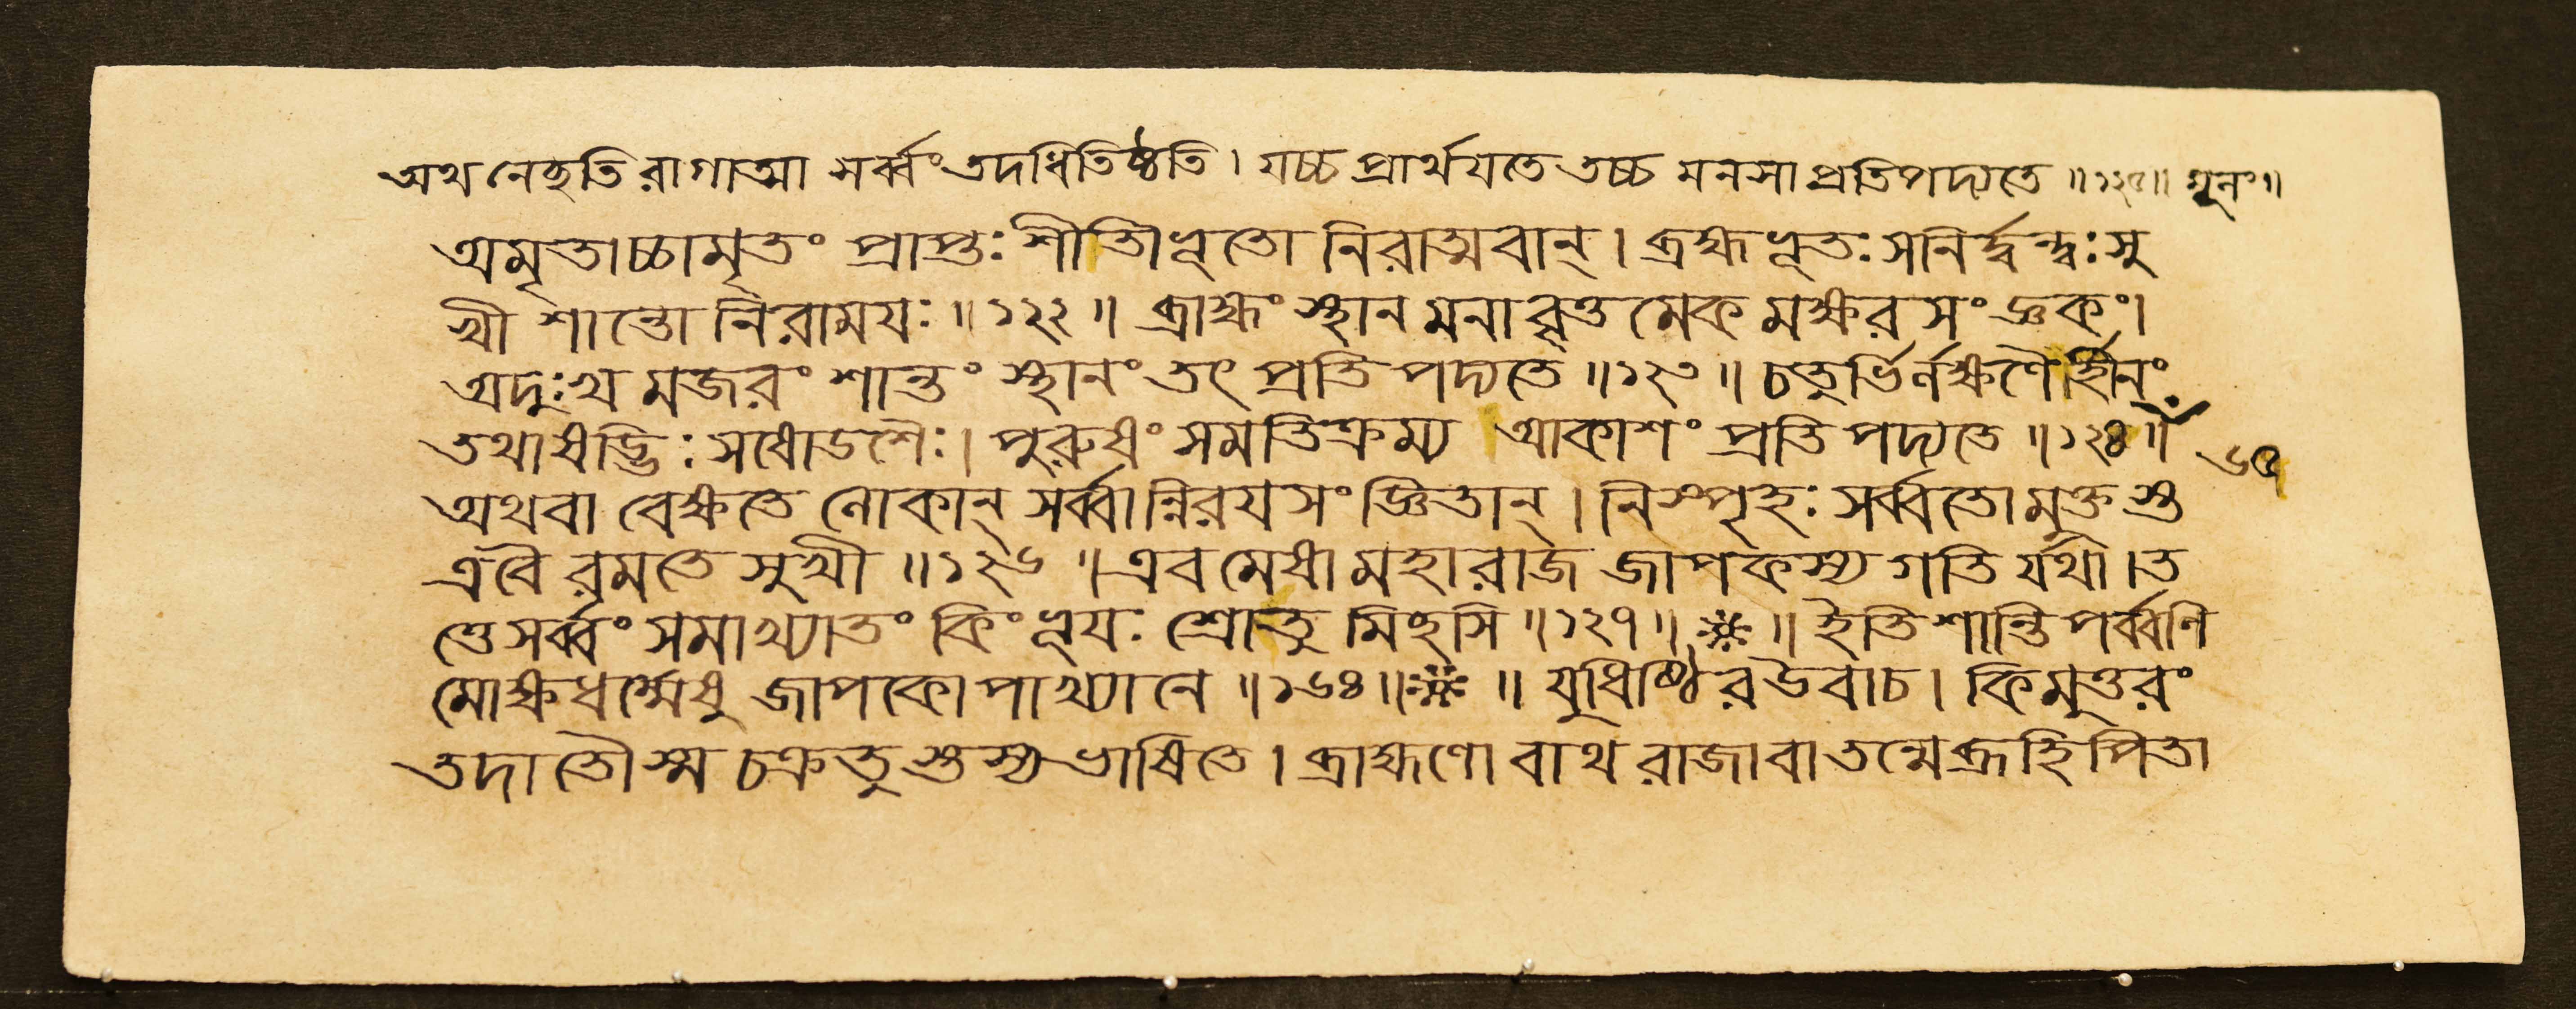 অথ নেচ্ছতি রাগাত্মা সর্ব্বং তদধিতিষ্ঠতি। যচ্চ প্রার্থযতে তচ্চ মনসা প্রতিপদ্যতে ॥১২৫॥ মূনং॥
অমৃতাচ্চামৃতং প্রাপ্তঃ শীতীভূতো নিরাত্মবান্। ব্রহ্মভূতঃ সনির্দ্বন্দ্বঃ সু
খী শান্তো নিরাময়ঃ ॥১২২॥ ব্রাহ্মং স্থানমনাবৃত্তমেকমক্ষরসংজ্ঞকং।
অদুঃখমজরং শান্তং স্থানং তৎ প্রতিপদ্যতে ॥১২৩॥ চতুর্ভির্লক্ষণৈর্হীনং
তথাষড্ভিঃ সষোডশৈঃ। পুরুষং সমতিক্রম্য আকাশং প্রতিপদ্যতে ॥১২৪॥
৬৫
অথবা বেক্ষতে লোকান্ সর্ব্বান্নিরযসংজ্ঞিতান্। নিস্পৃহঃ সর্ব্বতোমুক্তস্ত
ত্রবৈ রমতে সুখী ॥১২৬॥ এবমেষা মহারাজ জাপকস্য গতি র্যথা। ত
ত্তে সর্ব্বং সমাখ্যাতং কিং ভূযঃ শ্রোতুমিচ্ছসি ॥১২৭॥ ※ ॥ ইতি শান্তিপর্ব্বণি
মোক্ষধর্ম্মেষু জাপকোপাখ্যানে ॥১৬৪॥ ※ ॥ যুধিষ্ঠির উবাচ। কিমুত্তরং
তদা তৌ স্ম চক্রতুস্তস্য ভাষিতে। ব্রাহ্মণো বাথ রাজা বা তন্মে ব্রূহি পিতা